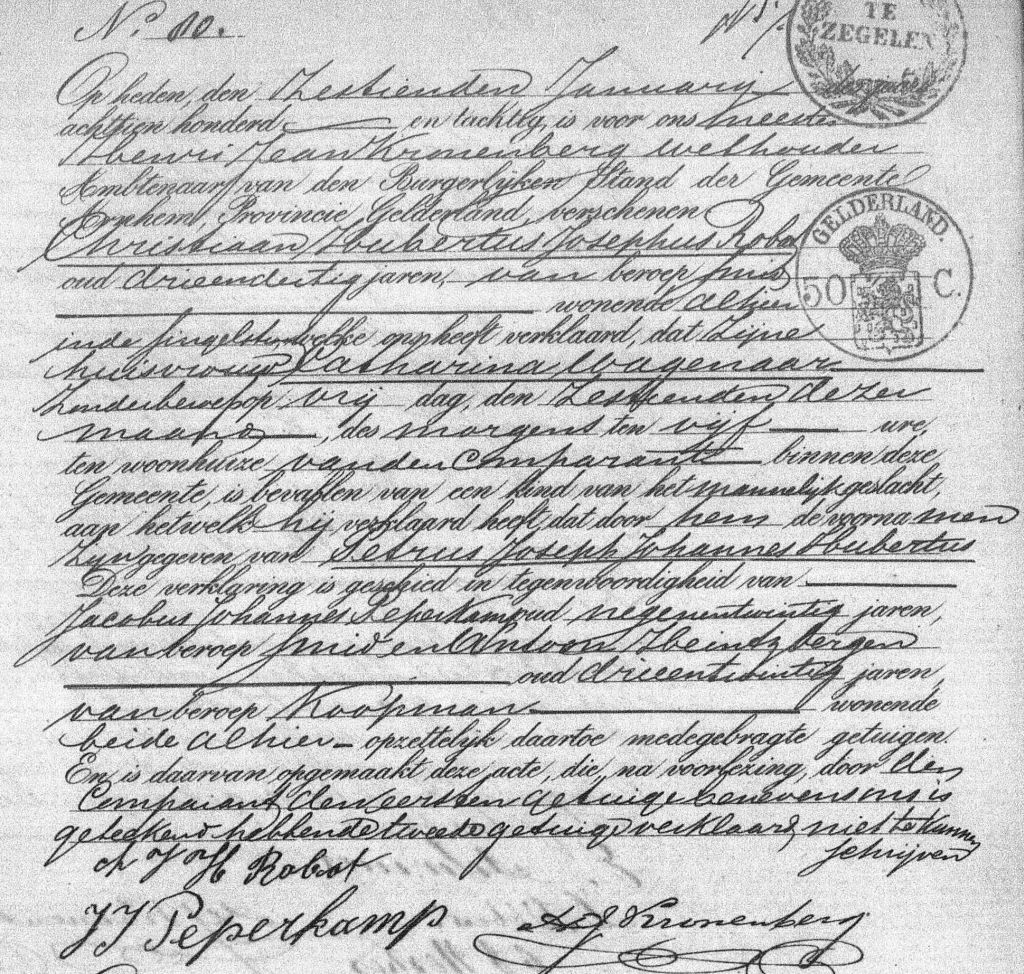 N.º 80.
TE
ZEGELEN
Op heden, den Zestienden January
achttien honderd en tachtig, is voor ons Meester
Henri Jean Kronenberg wethouder
Ambtenaar van den Burgerlijken Stand der Gemeente
Arnhem, Provincie Gelderland, verschenen
Christiaan Hubertus Josephus Robot
oud drieendertig jaren, van beroep smid
wonende alhier
GELDERLAND.
50 C.
in de singelstr welke ons heeft verklaard, dat Zijne
huisvrouw Catharina Wagenaar
Zonder beroep op vrij dag, den Zestienden dezer
maand, des morgens ten vijf ure,
ten woonhuize van den Comparant binnen deze
Gemeente, is bevallen van een kind van het mannelijk geslacht,
aan hetwelk hij verklaard heeft, dat door hem de voornamen
Zijn gegeven van Petrus Joseph Johannes Hubertus
Deze verklaring is geschied in tegenwoordigheid van
Jacobus Johannes Peperkamp oud negenentwintig jaren,
van beroep smid en Antoon Heintzbergen
oud drieentwintig jaren,
van beroep Koopman wonende
beide alhier opzettelijk daartoe medegebragte getuigen.
En is daarvan opgemaakt deze acte, die, na voorlezing, door den
Comparant den eersten getuige benevens ons is
geteekend hebbende tweede getuige verklaard niet te kunnen
schrijven
Ch J H Robot
JJ Peperkamp Kronenberg